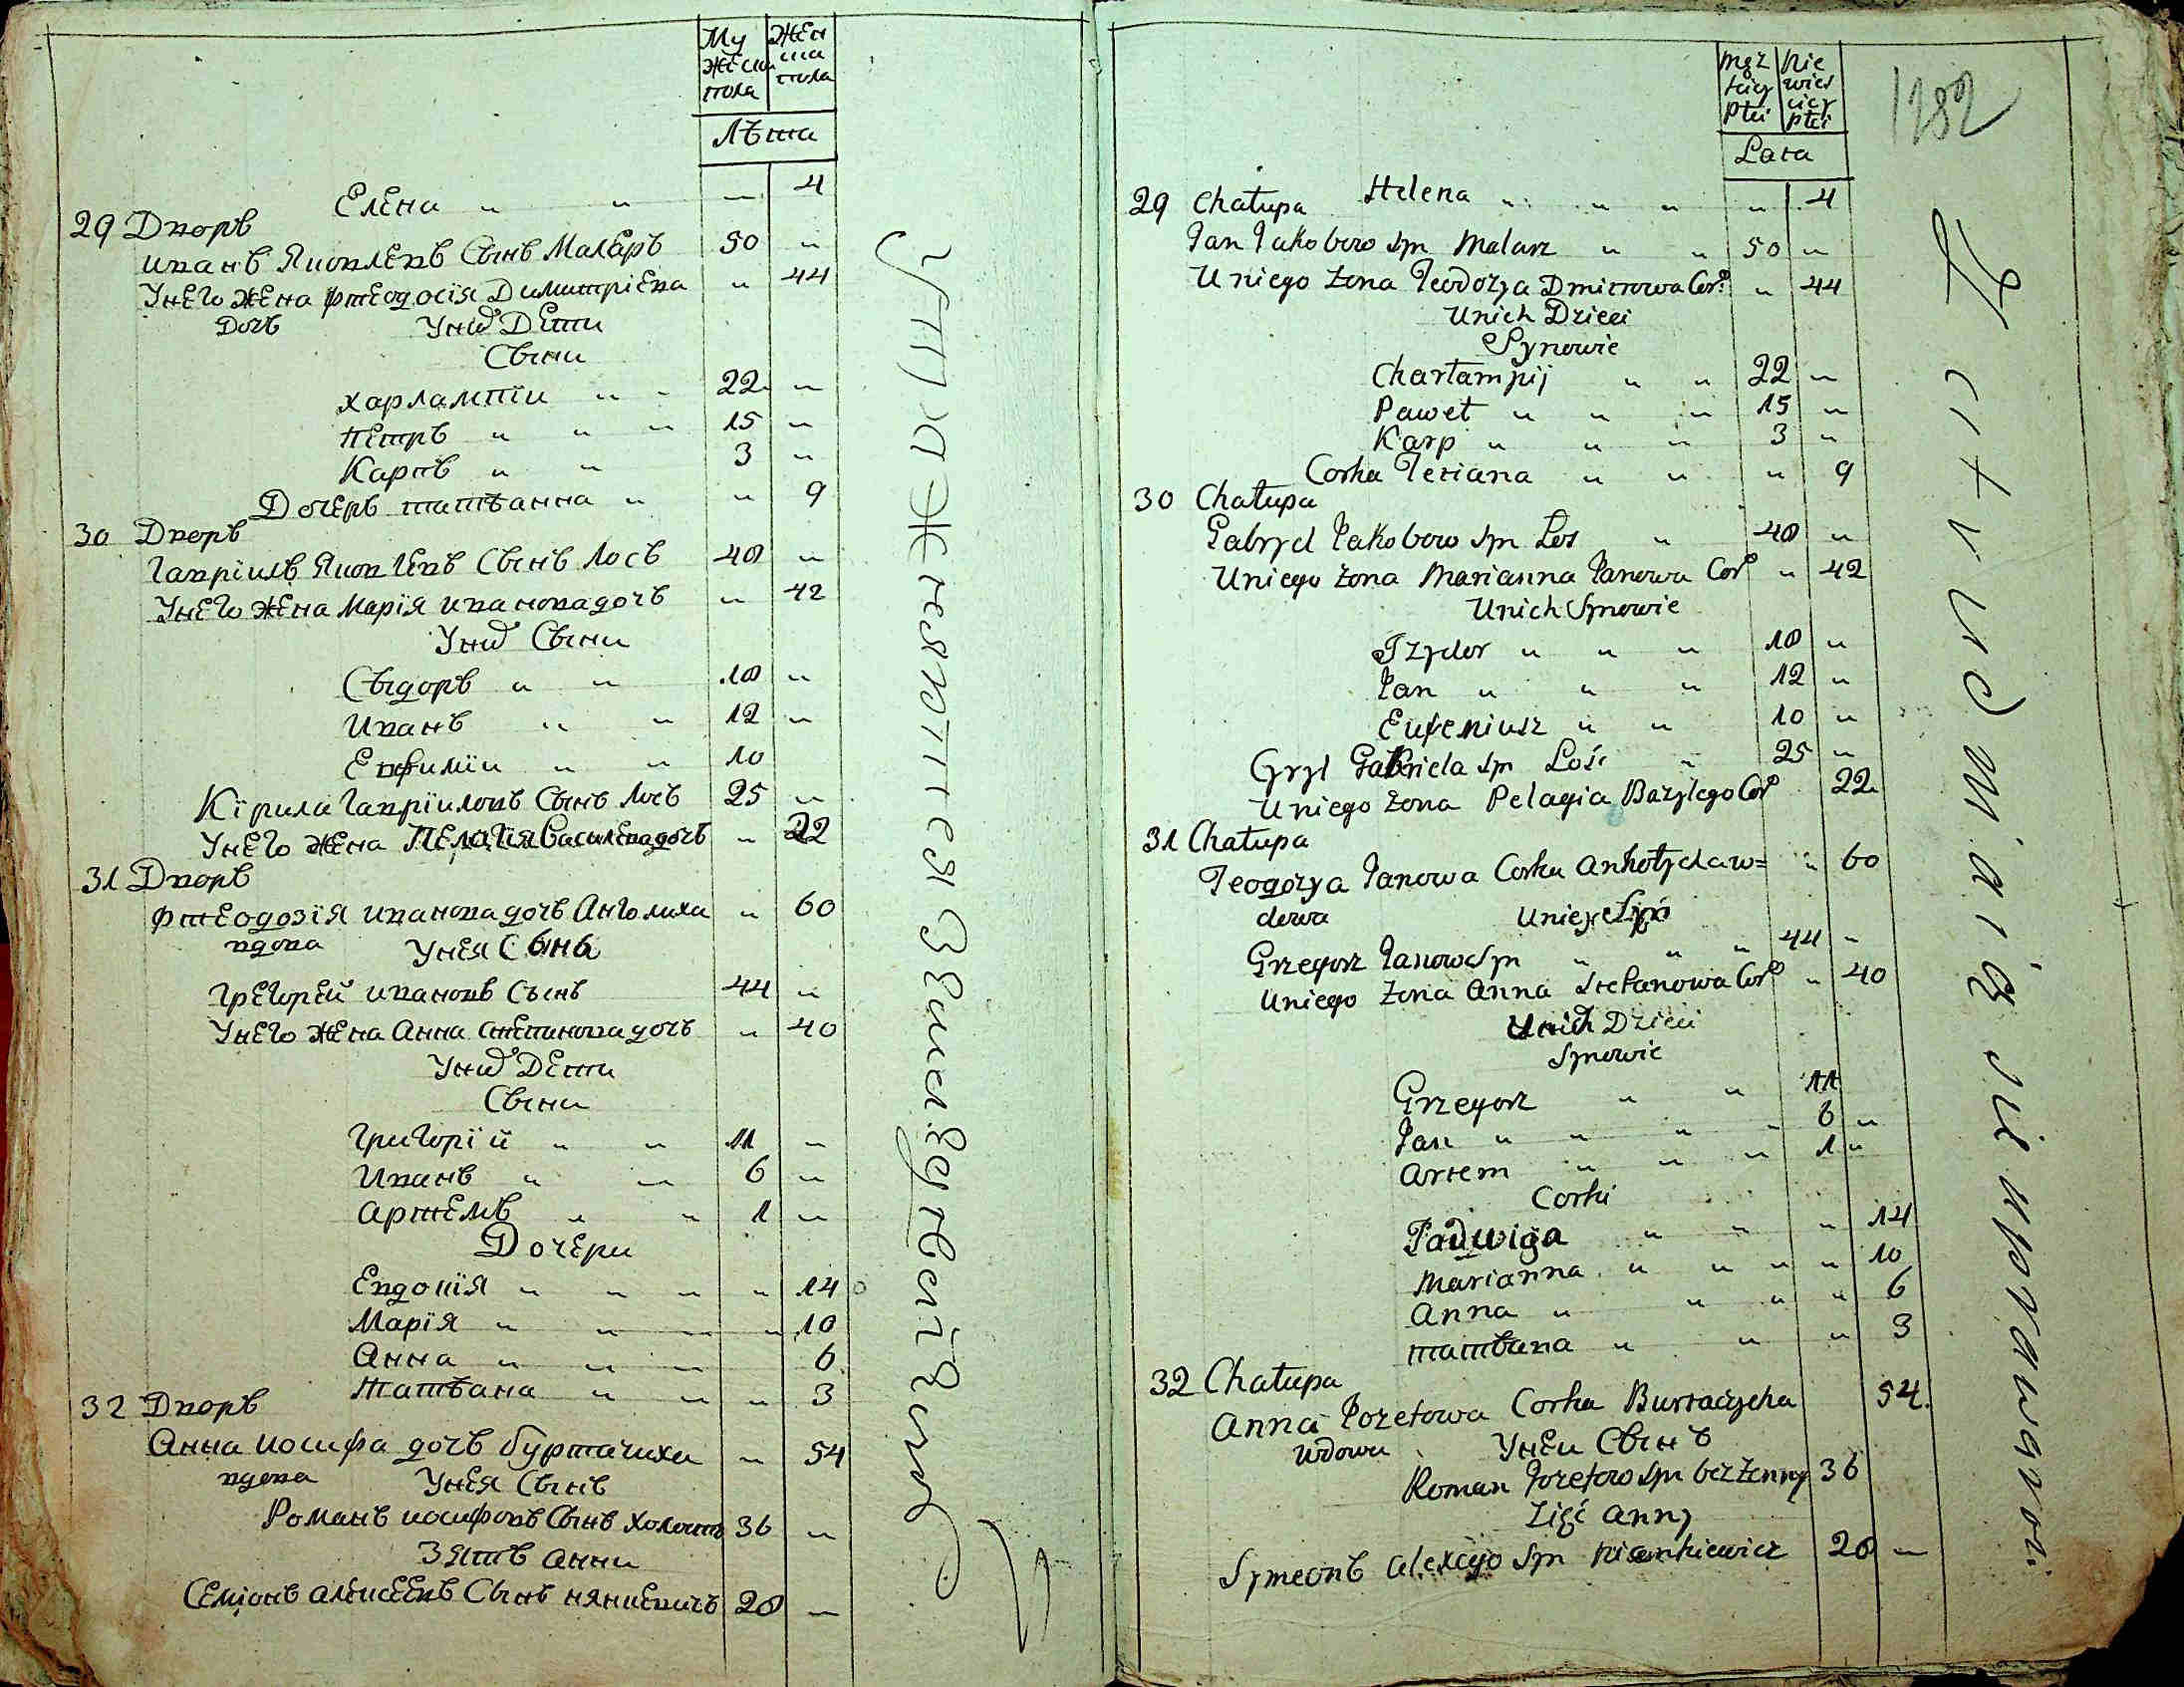 Му жеска пола
Жен ска пола
Лѣта
Елена " " — 4
29 Дворъ
Иванъ Яковлевъ Сынъ Маляръ 50 "
Унего жена Фтеодосія Димитріева " 44
дочъ Уних Дети
Сыни
Харлампїи " " 22 "
Петръ " " " 15 "
Карпъ " " 3 "
Дочеръ татъанна " " 9
30 Дворъ
Гавріилъ Яковлевъ Сынъ Лосъ 48 "
Унего жена Марїя Иванова дочъ " 42
Уних Сыни
Сыдоръ " " 18 "
Иванъ " " 12 "
Евфимїи " " 10
Кїрила Гаврїиловъ Сынъ Лосъ 25 "
Унего жена Пелагїя Василева дочъ " 22
31 Дворъ
Фтеодозїя Иванова дочъ " 60
вдова Унея Сынъ
Грегорей Ивановъ Сынъ 44 "
Унего жена Анна Степанова дочъ " 40
Уних Дети
Сыни
Григорїй " " 11 "
Иванъ " " 6 "
Артемъ " " 1 "
Дочери
Евдокїя " " " " 14
Марїя " " " " 10
Анна " " " 6
Татъана " " " " 3
32 Дворъ
Анна Иосифа дочъ Буртачиха " 54
вдова Унея Сынъ
Романъ Иосифовъ Сынъ холостъ 36 "
Зятъ Анни
Семіонъ Алексеевъ Сынъ 28 "
męż kiey płci
nie wies ciey płci
Lata
1282
Helena " " " " 4
29 Chałupa
Jan Jakobow syn Malarz " " 50 "
U niego żona Teodozya Dmitrowa Cor: " 44
Unich Dzieci
Synowie
Charłampij " " 22 "
Paweł " " " 15 "
Karp " " " 3 "
Corka Tetiana " " " 9
30 Chałupa
Gabryel Jakobow syn Łoś " 48 "
Uniego żona Marianna Janowa Cor: " 42
Unich Synowie
Izydor " " " 18 "
Jan " " " 12 "
Eufemiusz " " 10 "
Gabriela syn Łoś " 25 "
Uniego żona Pelagia Bazylego Cor: 22
31 Chałupa
Teodozya Janowa Corka " 60
dowa Uniey Syn
Grzegorz Janow Syn " " " 44 "
Uniego żona Anna Stefanowa Cor: " 40
Unich Dzieci
Synowie
Grzegorz " " 11
Jan " " " " 6 "
Artem " " " 1 "
Corki
Jadwiga " " " 14
Marianna " " " " 10
Anna " " " " 6
татъана " " " 3
32 Chałupa
Anna Jozefowa Corka Burtaczycha 54
wdowa Унеи Сынъ
Roman Jozefow syn bez żenny 36
Zięć Anny
Symeonъ Alexego Syn 28 "